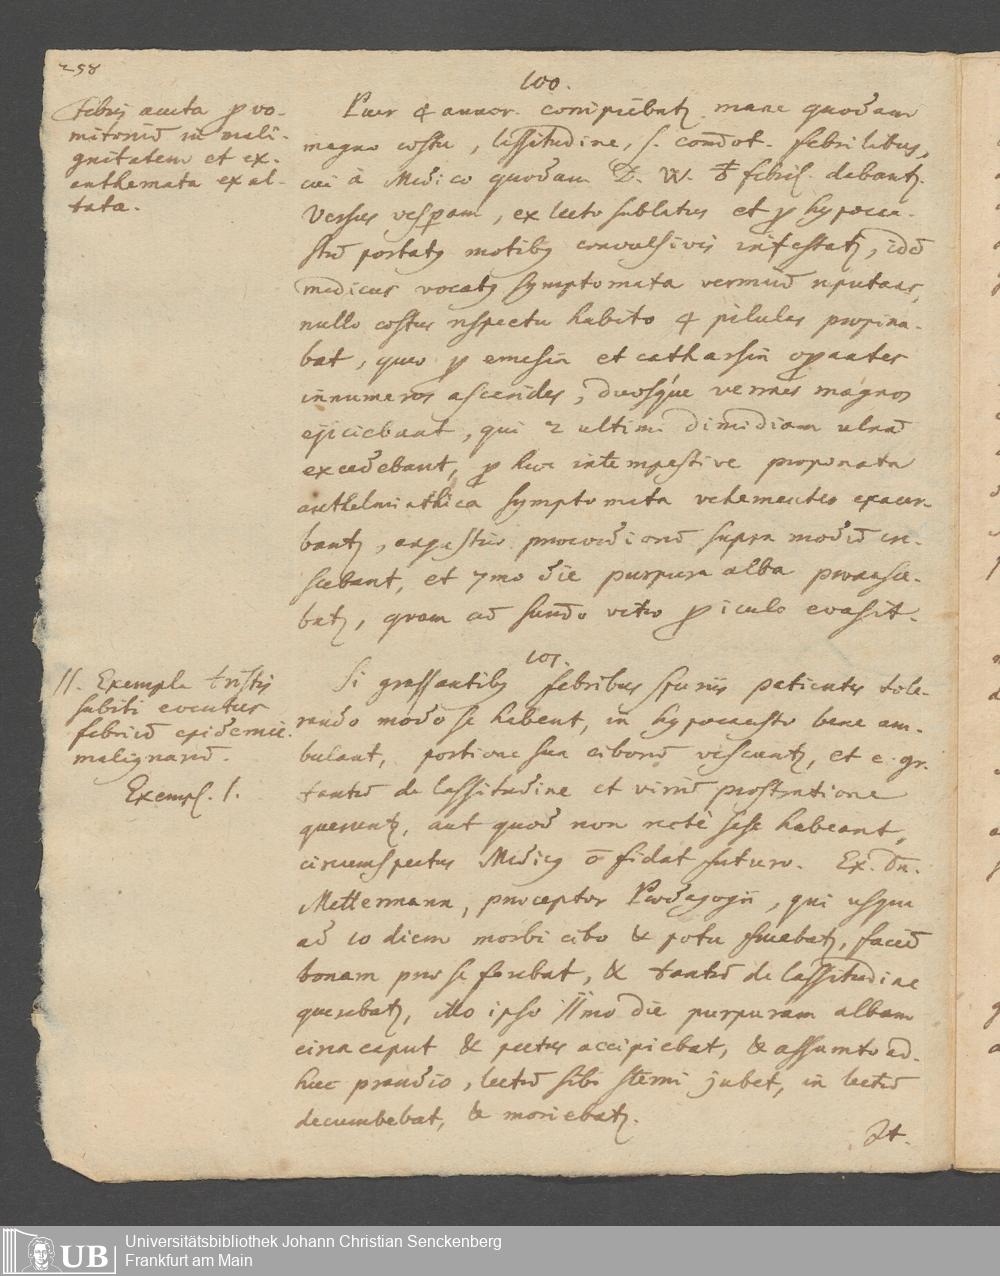 258
100.
Febris acuta p vo-
mitoriũ in mali-
gnitatem et ex-
anthemata exal-
tata.
Puer 4 annor. corripiebatʒ mane quodam
magno costu, lassitudine, s. comot. febrilibus,
cui à Medico quodam D. W. febril. dabantʒ.
Versus vesperam, ex lecto sublatus et p hypocau-
stũ portatʒ motibʒ convulsivis infestatʒ, idẽ
medicus vocatʒ symptomata vermiũ reputans,
nullo costus respectu habito 4 pilulas propina-
bat, quæ p emesin et catharsin operantes
innumeros ascerides, duosque vermes magnos
ejiciebant, qui 2 ultimi dimidiam ulnã
excedebant, p hæc intempestive proponata
anthelminthica symptomata vehementer exacer-
bantʒ, angustiæ præcordiorũ supra modũ cre-
scebant, et 7mo die purpura alba prorumpe-
batʒ, quam cũ summo vitæ periculo evasit.
101.
11. Exempla tristis
subiti eventus
febriũ epidemic.
malignarũ.
Exempl. 1.
Si grassantibʒ febribus spuriis patientes tole-
rando modo se habent, in hypocausto bene am-
bulant, portione sua ciborũ vescuntʒ, et e. gr.
tantũ de lassitudine et viriũ prostratione
queruntʒ, aut quod non rectè sese habeant,
circumspectus Medicʒ õ fidat futuro. Ex. Dn.
Mettermann, præceptor Pædagogii, qui usque
ad 10 diem morbi cibo & potu fruebatʒ, faciẽ
bonam præ se ferebat, & tantũ de lassitudine
querebatʒ, illo ipso 11mo die purpuram albam
circa caput & pectus accipiebat, & assumto ad-
huc prandio, lectũ sibi sterni jubet, in lectũ
decumbebat, & moriebatʒ.
It.
UB
Universitätsbibliothek Johann Christian Senckenberg
Frankfurt am Main